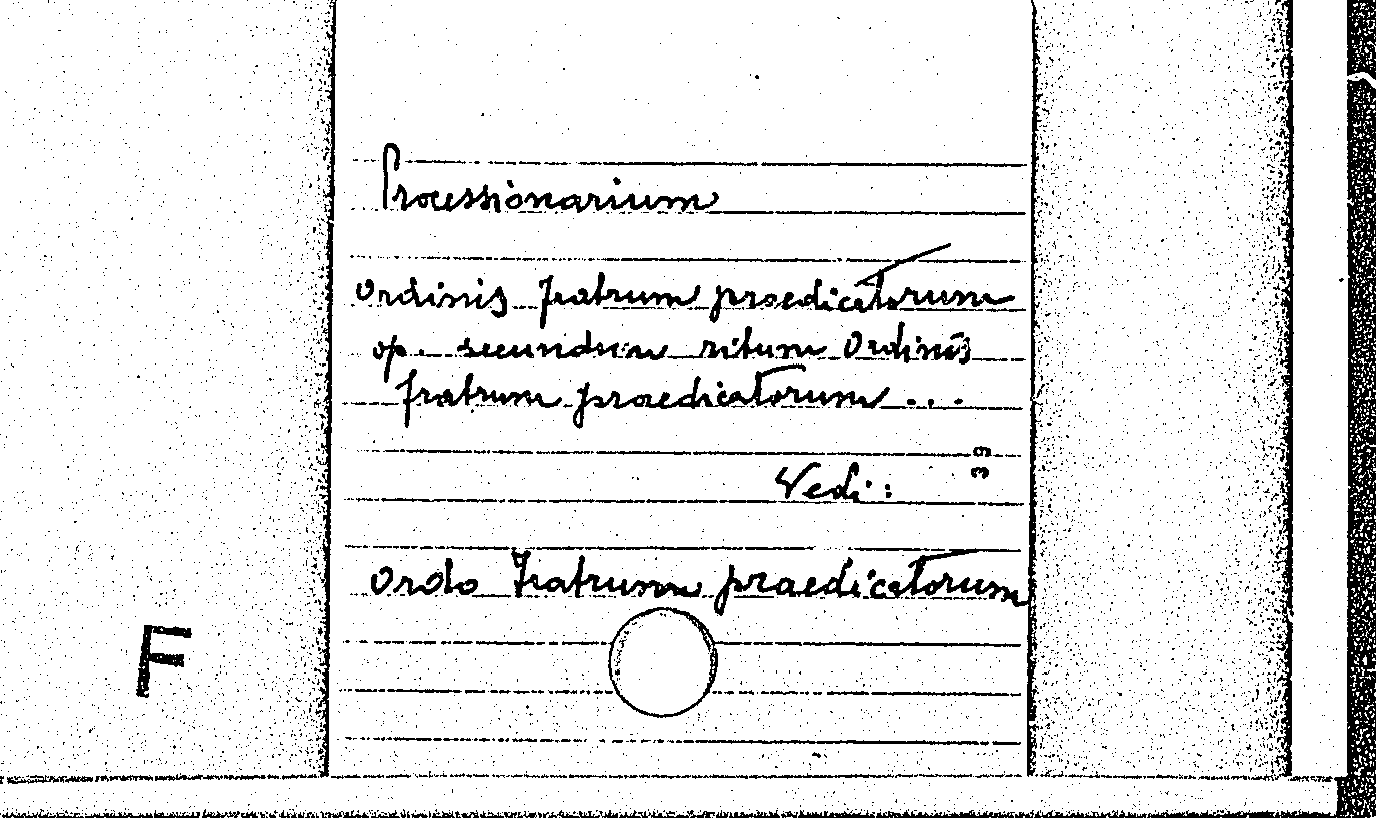 Processionarium
Ordinis fratrum praedicatorum
op. secundum ritum Ordinis
fratrum praedicatorum ...
39
Vedi:
Ordo Fratrum praedicatorum
F